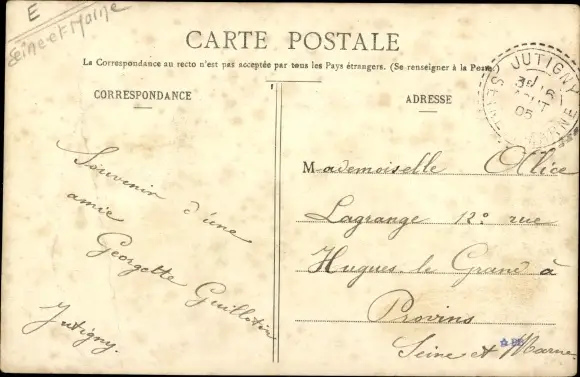 E
Seine-et-Marne
CARTE POSTALE
La Correspondance au recto n'est pas acceptée par tous les Pays étrangers. (Se renseigner à la Poste)
CORRESPONDANCE
ADRESSE
JUTIGNY
3E / 16
AOUT
05
SEINE-ET-MARNE
Souvenir d'une
amie
Georgette Guillotin
Jutigny.
Mademoiselle Ollice
Lagrange 12° rue
Hugues-le Grand à
Provins
Seine et Marne